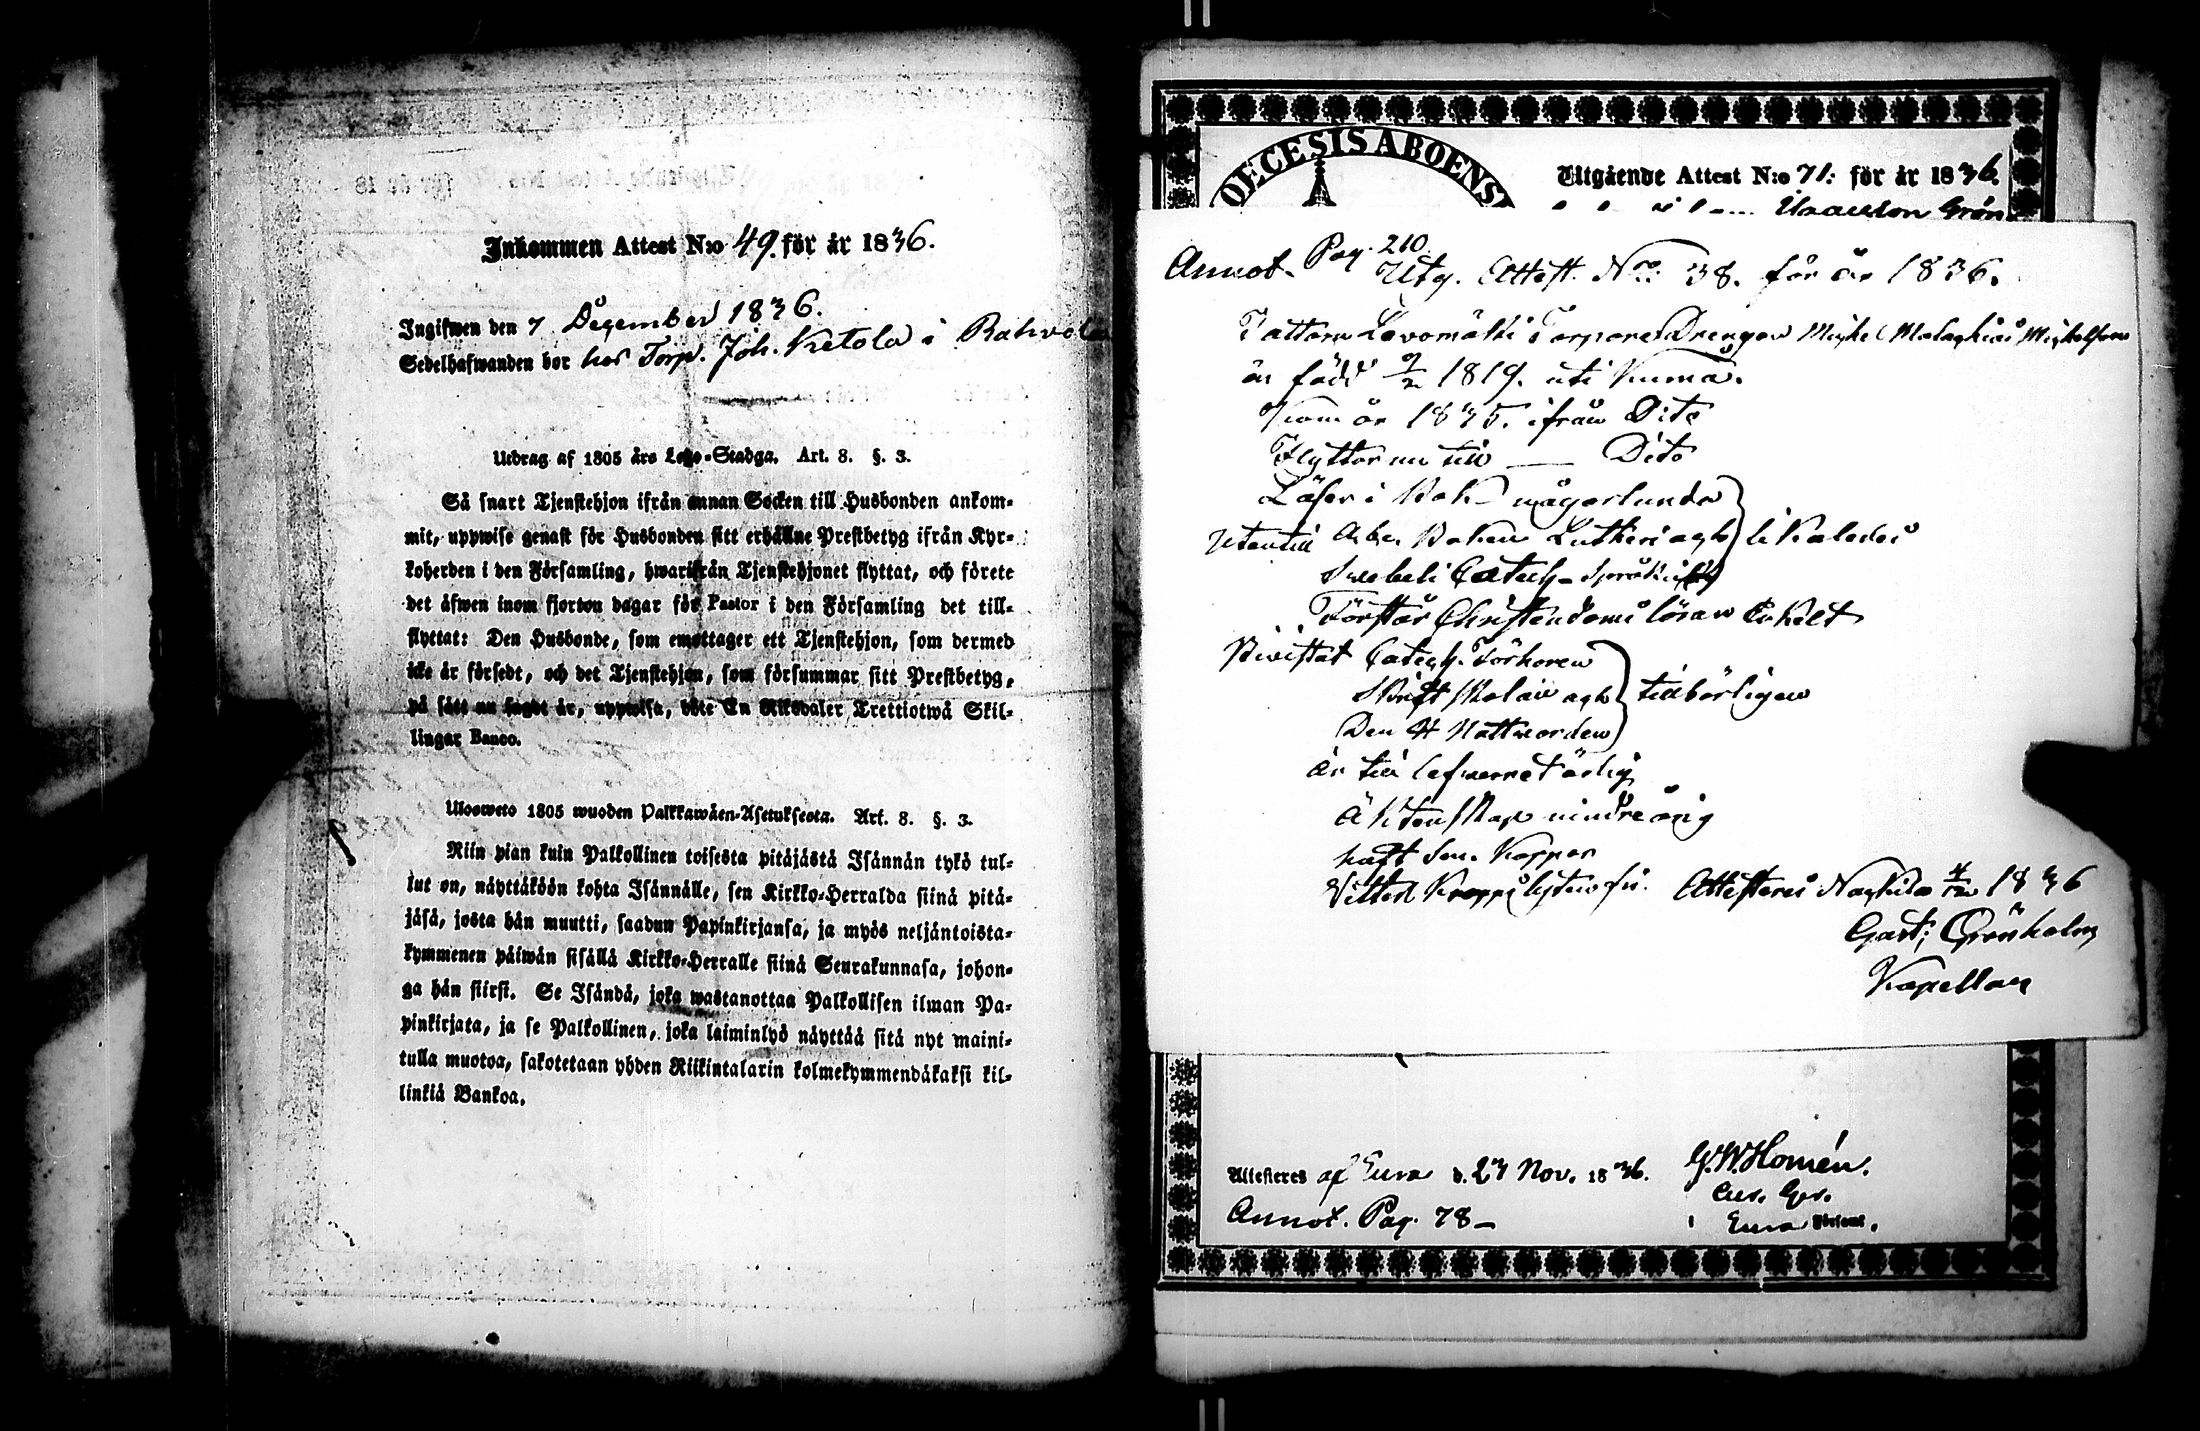 Inkommen Attest N:o 49. för år 1836.
Ingifwen den 7 December 1836.
Sedelhafwanden bor hos Torp. Joh. Ketola i Rahvola
Utdrag af 1805 års Lego-Stadga. Art. 8. §. 3.
Så snart Tjenstehjon ifrån annan Socken till Husbonden ankom-
mit, uppwise genast för Husbonden sitt erhållne Prestbetyg ifrån Kyr-
koherden i den Församling, hwarifrån Tjenstehjonet flyttat, och förete
det äfwen inom fjorton dagar för Pastor i den Församling det till-
flyttat: Den Husbonde, som emottager ett Tjenstehjon, som dermed
icke är försedt, och det Tjenstehjon, som försummar sitt Prestbetyg,
på sätt nu sagdt är, uppwisa, böte En Riksdaler Trettiotwå Skil-
lingar Banco.
Ulosweto 1805 wuoden Palkkawäen-Asetuksesta. Art. 8. §. 3.
Niin pian kuin Palkollinen toisesta pitäjästä Isännän tykö tul-
lut on, näyttäköön kohta Isännälle, sen Kirkko-Herralda siinä pitä-
jäsä, josta hän muutti, saadun Papinkirjansa, ja myös neljäntoista-
kymmenen päiwän sisällä Kirkko-Herralle siinä Seurakunnasa, johon-
ga hän siirsi. Se Isändä, joka wastanottaa Palkollisen ilman Pa-
pinkirjata, ja se Palkollinen, joka laiminlyö näyttää sitä nyt maini-
tulla muotoa, sakotetaan yhden Riikintalarin kolmekymmendäkaksi kil-
linkiä Bankoa.
DECESIS ABOENS
Utgående Attest N:o 71: för år 1836.
Grön
Annot. Pag. 210.
Utg. Attest. No: 38. för år 1836.
Torpare Drengen Michel Malachias Michelsson
är född 9/2 1819. uti Kumå.
Kom år 1835. ifrån Dito
Flyttar nu till — Dito
Läser i Bok någorlunda
Utantill Abc Boken Lutheri och likaledes
Svebelii Catech. Språk
Förstår Christendoms läran Enkelt
Bivistat Catech. Förhören
Skriftskolan och tillbörligen
Den H Nattvarden
är till lefvernet ärlig
Äktenskap minderårig
haft Sm. Koppor
Vitterl. Kropps lyten fri. Attesteras Nackila 4/12 1836
Gust; Grönholm
Kapellan
Attesteres af Eura d. 23 Nov. 1836. G. W. Homén.
Annot. Pag. 78 —
i Eura Församl.